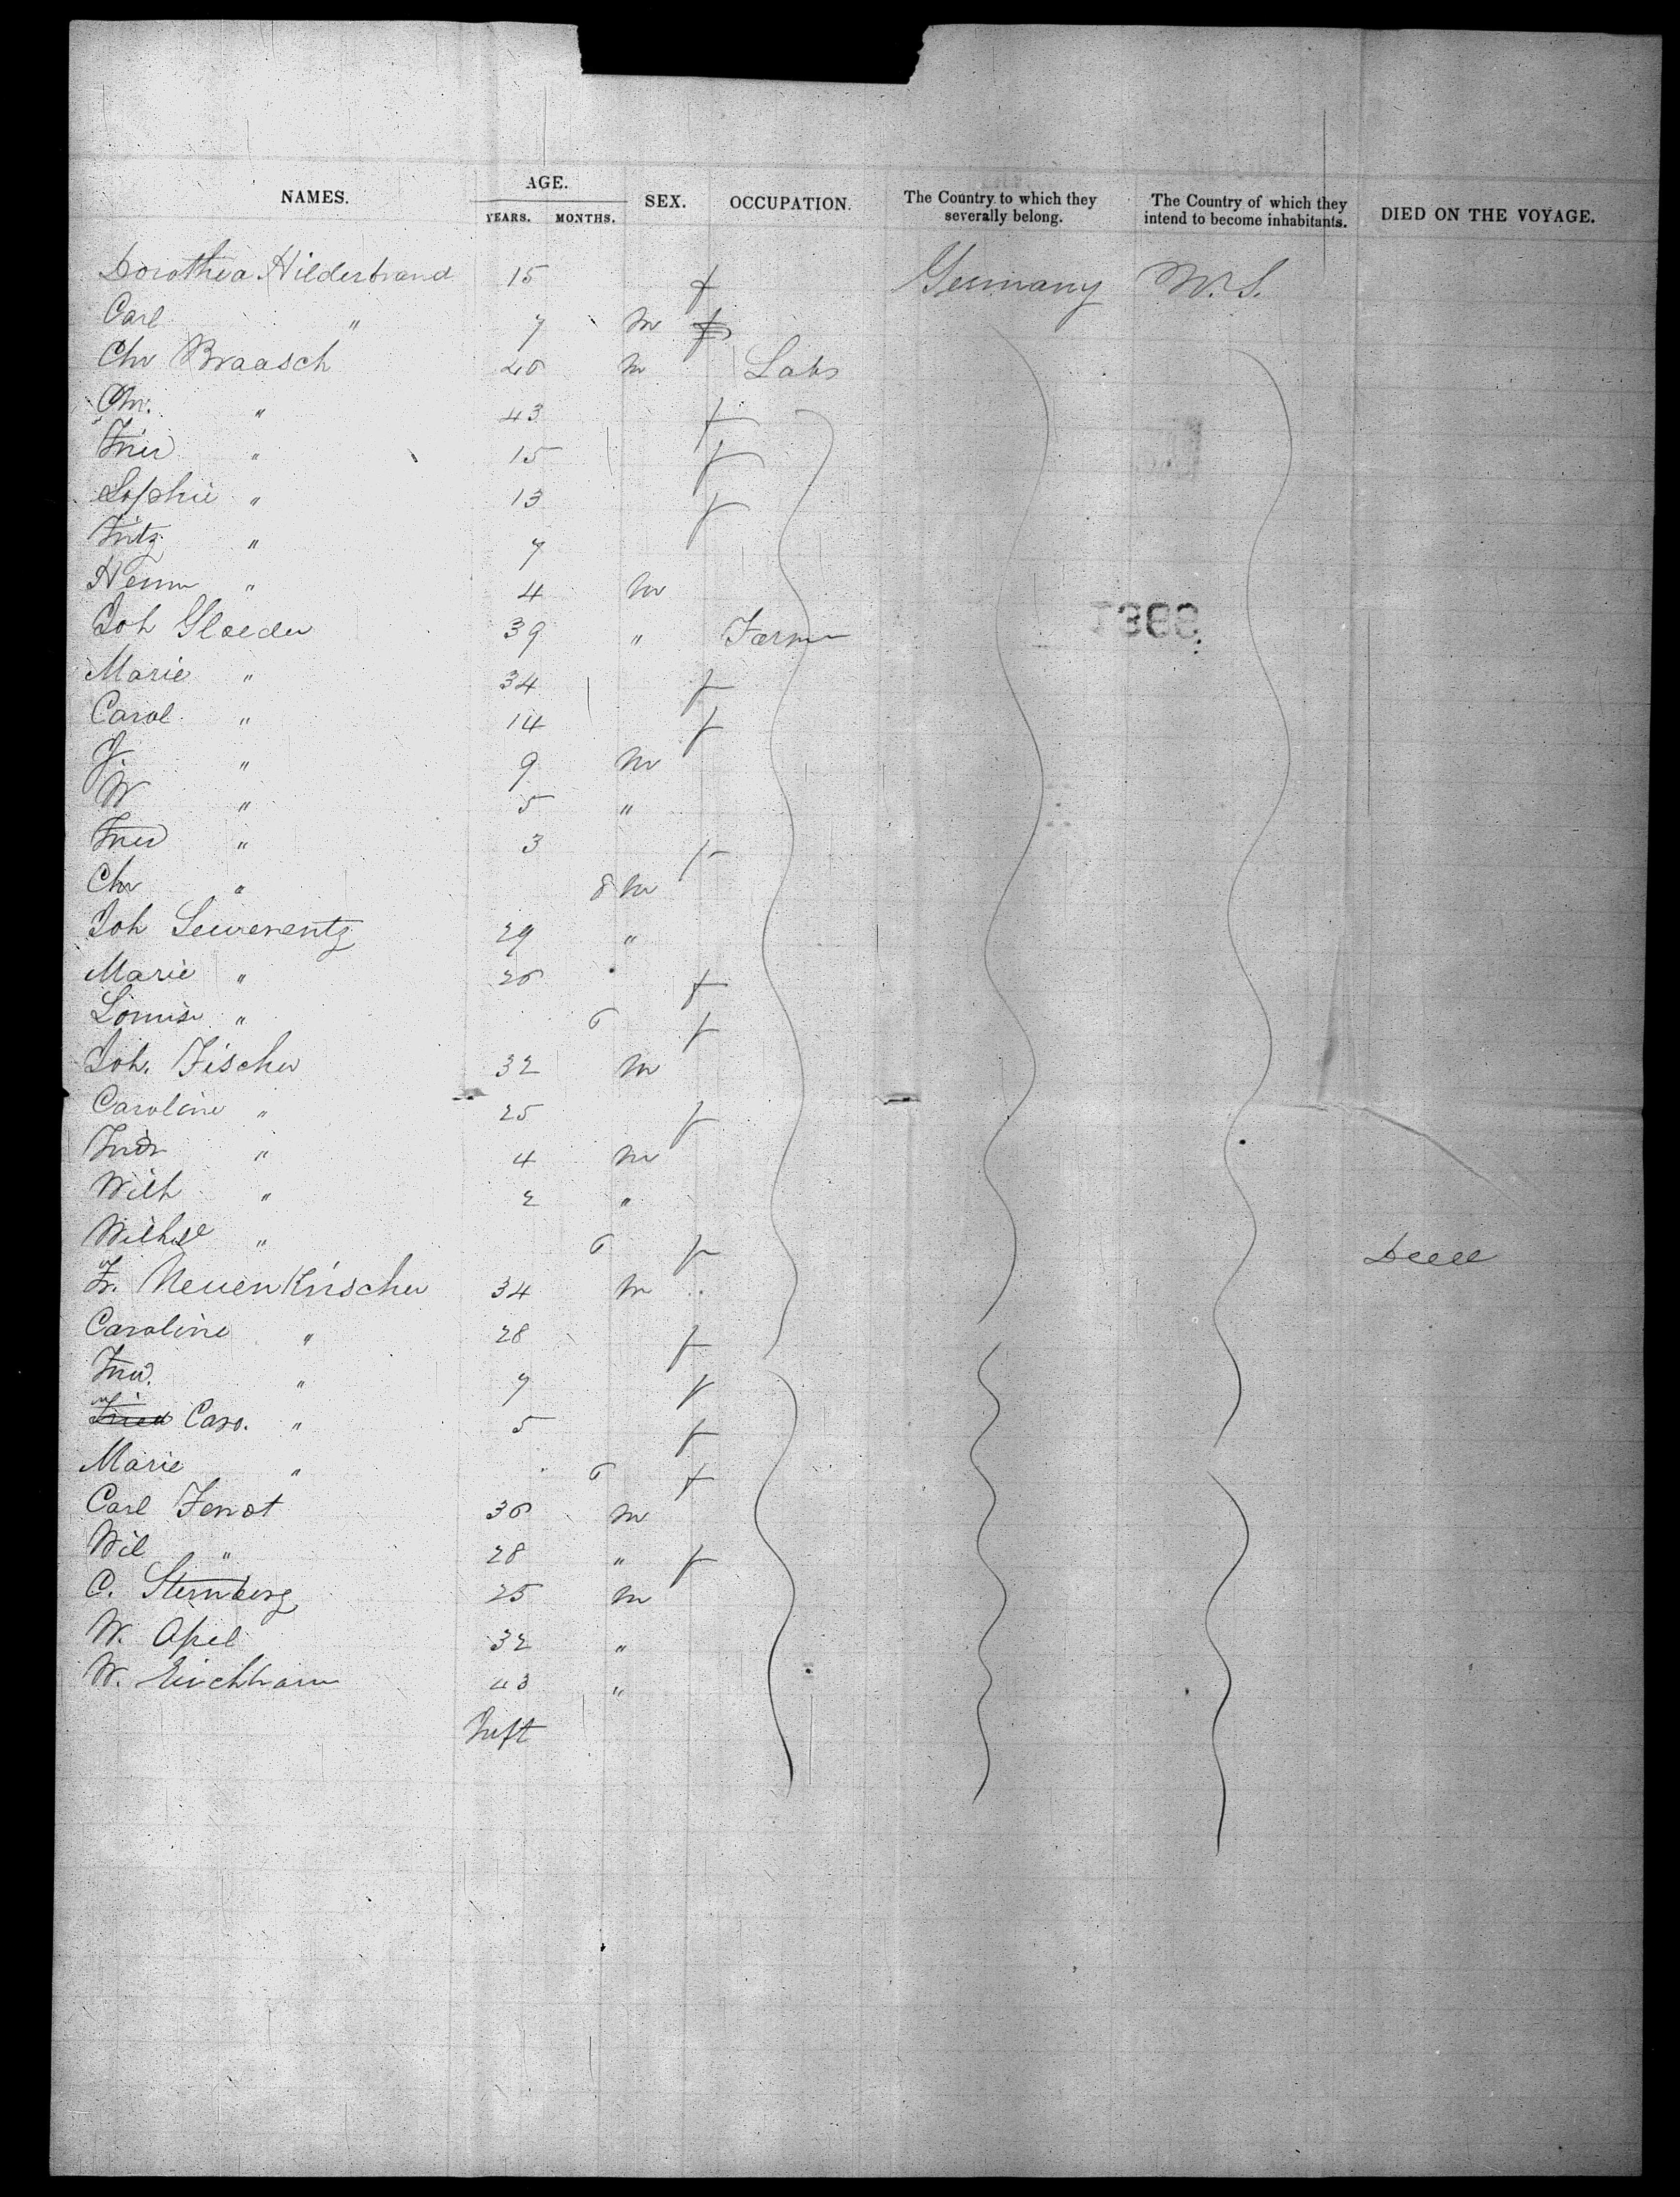 NAMES. AGE. SEX. OCCUPATION. The Country to which they severally belong. The Country of which they intend to become inhabitants. DIED ON THE VOYAGE.
YEARS. MONTHS.
Dorothea Hilderbrand 15 f Germany
Carl " 7 m
Chr Braasch m Labr
" 43 f
" 15 f
Sophie " 13 f
Fritz " 7
Herm " 4 m
Joh Gloeder 39 " Farmr
Marie " 34 f
Carol. " 14 f
J. " 9 m
W " 5 "
" 3 f
Chr " 8 m
Joh Lewerentz 29 "
Marie " 26 f
Louise " 6 f
Joh. Fischer 32 m
Caroline " 25 f
" 4 m
Wilh " 2 "
" 6 f
Fr. Neuenkirscher 34 m
Caroline " 28 f
" 7 f
Caro. " 5 f
Marie " 6 f
Carl 36 m
Wil " 28 " f
C. Sternberg 25 m
W. Apel 32 "
W. 43 "